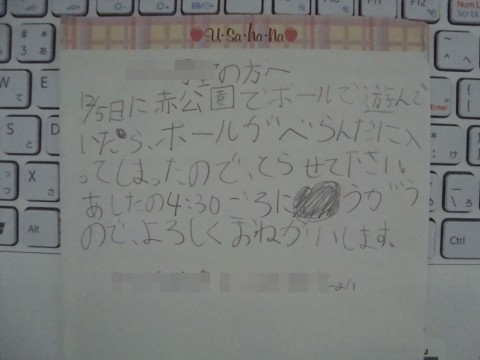 U・Sa・ha・Na
の方へ
12/5日に赤公園でボールで遊んで
いたら、ボールがべらんだに入
ってしまったので、とらせて下さい。
あしたの4:30ごろにうかがう
ので、よろしくおねがいします。
W
E
R
S
D
Z
X
Alt
Enter
Ctrl